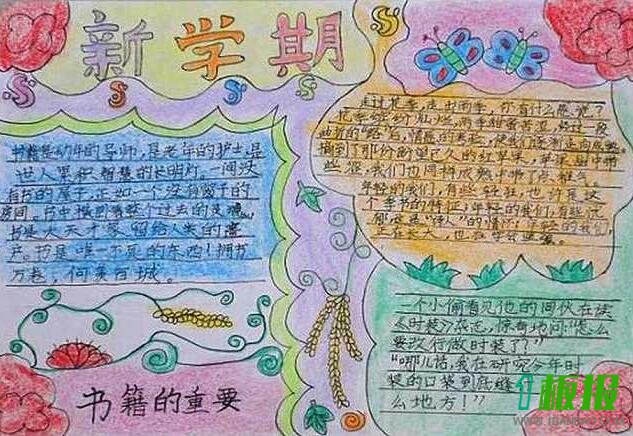 新学期
书籍是幼年的导师，是老年的护士是
世人累积智慧的长明灯。一间没
有书的屋子，正如一个没有窗子的
房间。书中横卧着整个过去的灵魂。
书是天才留给人类的遗
产。书是唯一不死的东西！拥书
万卷，何异百城。
书籍的重要
走过花季，走出雨季，你有什么感觉？
花季缤纷灿烂，雨季甜蜜苦涩，
我们也同样成熟中带了点稚气。
年轻的我们，有些轻狂，也许是这
个季节的特征；年轻的我们，有些
正在长大，也在
一个小偷看见他的同伙在读
《时装》杂志，惊奇地问：“怎么
要改行做时装了？”
“哪儿话，我在研究今年时
装的口袋到底缝
么地方！”
板报